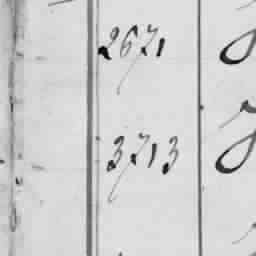 2671
3713